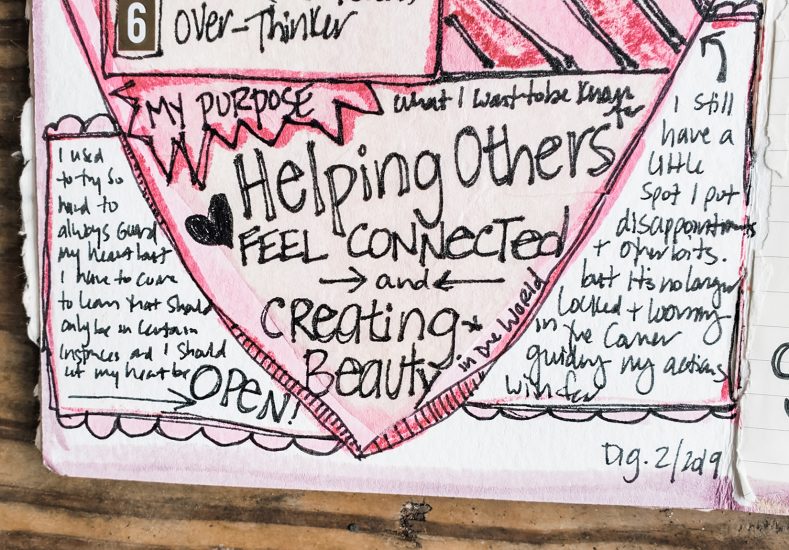 6
Over-Thinker
MY PURPOSE
What I want to be known
for
Helping Others
FEEL CONNECTED
and
Creating
Beauty
in the World
I used
to try so
hard to
always Guard
my heart but
I have to come
to learn that should
only be in certain
instances and I should
let my heart be
OPEN!
I still
have a
little
spot I put
disappointments
+ other bits.
but it's no longer
locked + looming
in the corner
guiding my actions
with fear
Dig. 2/2019